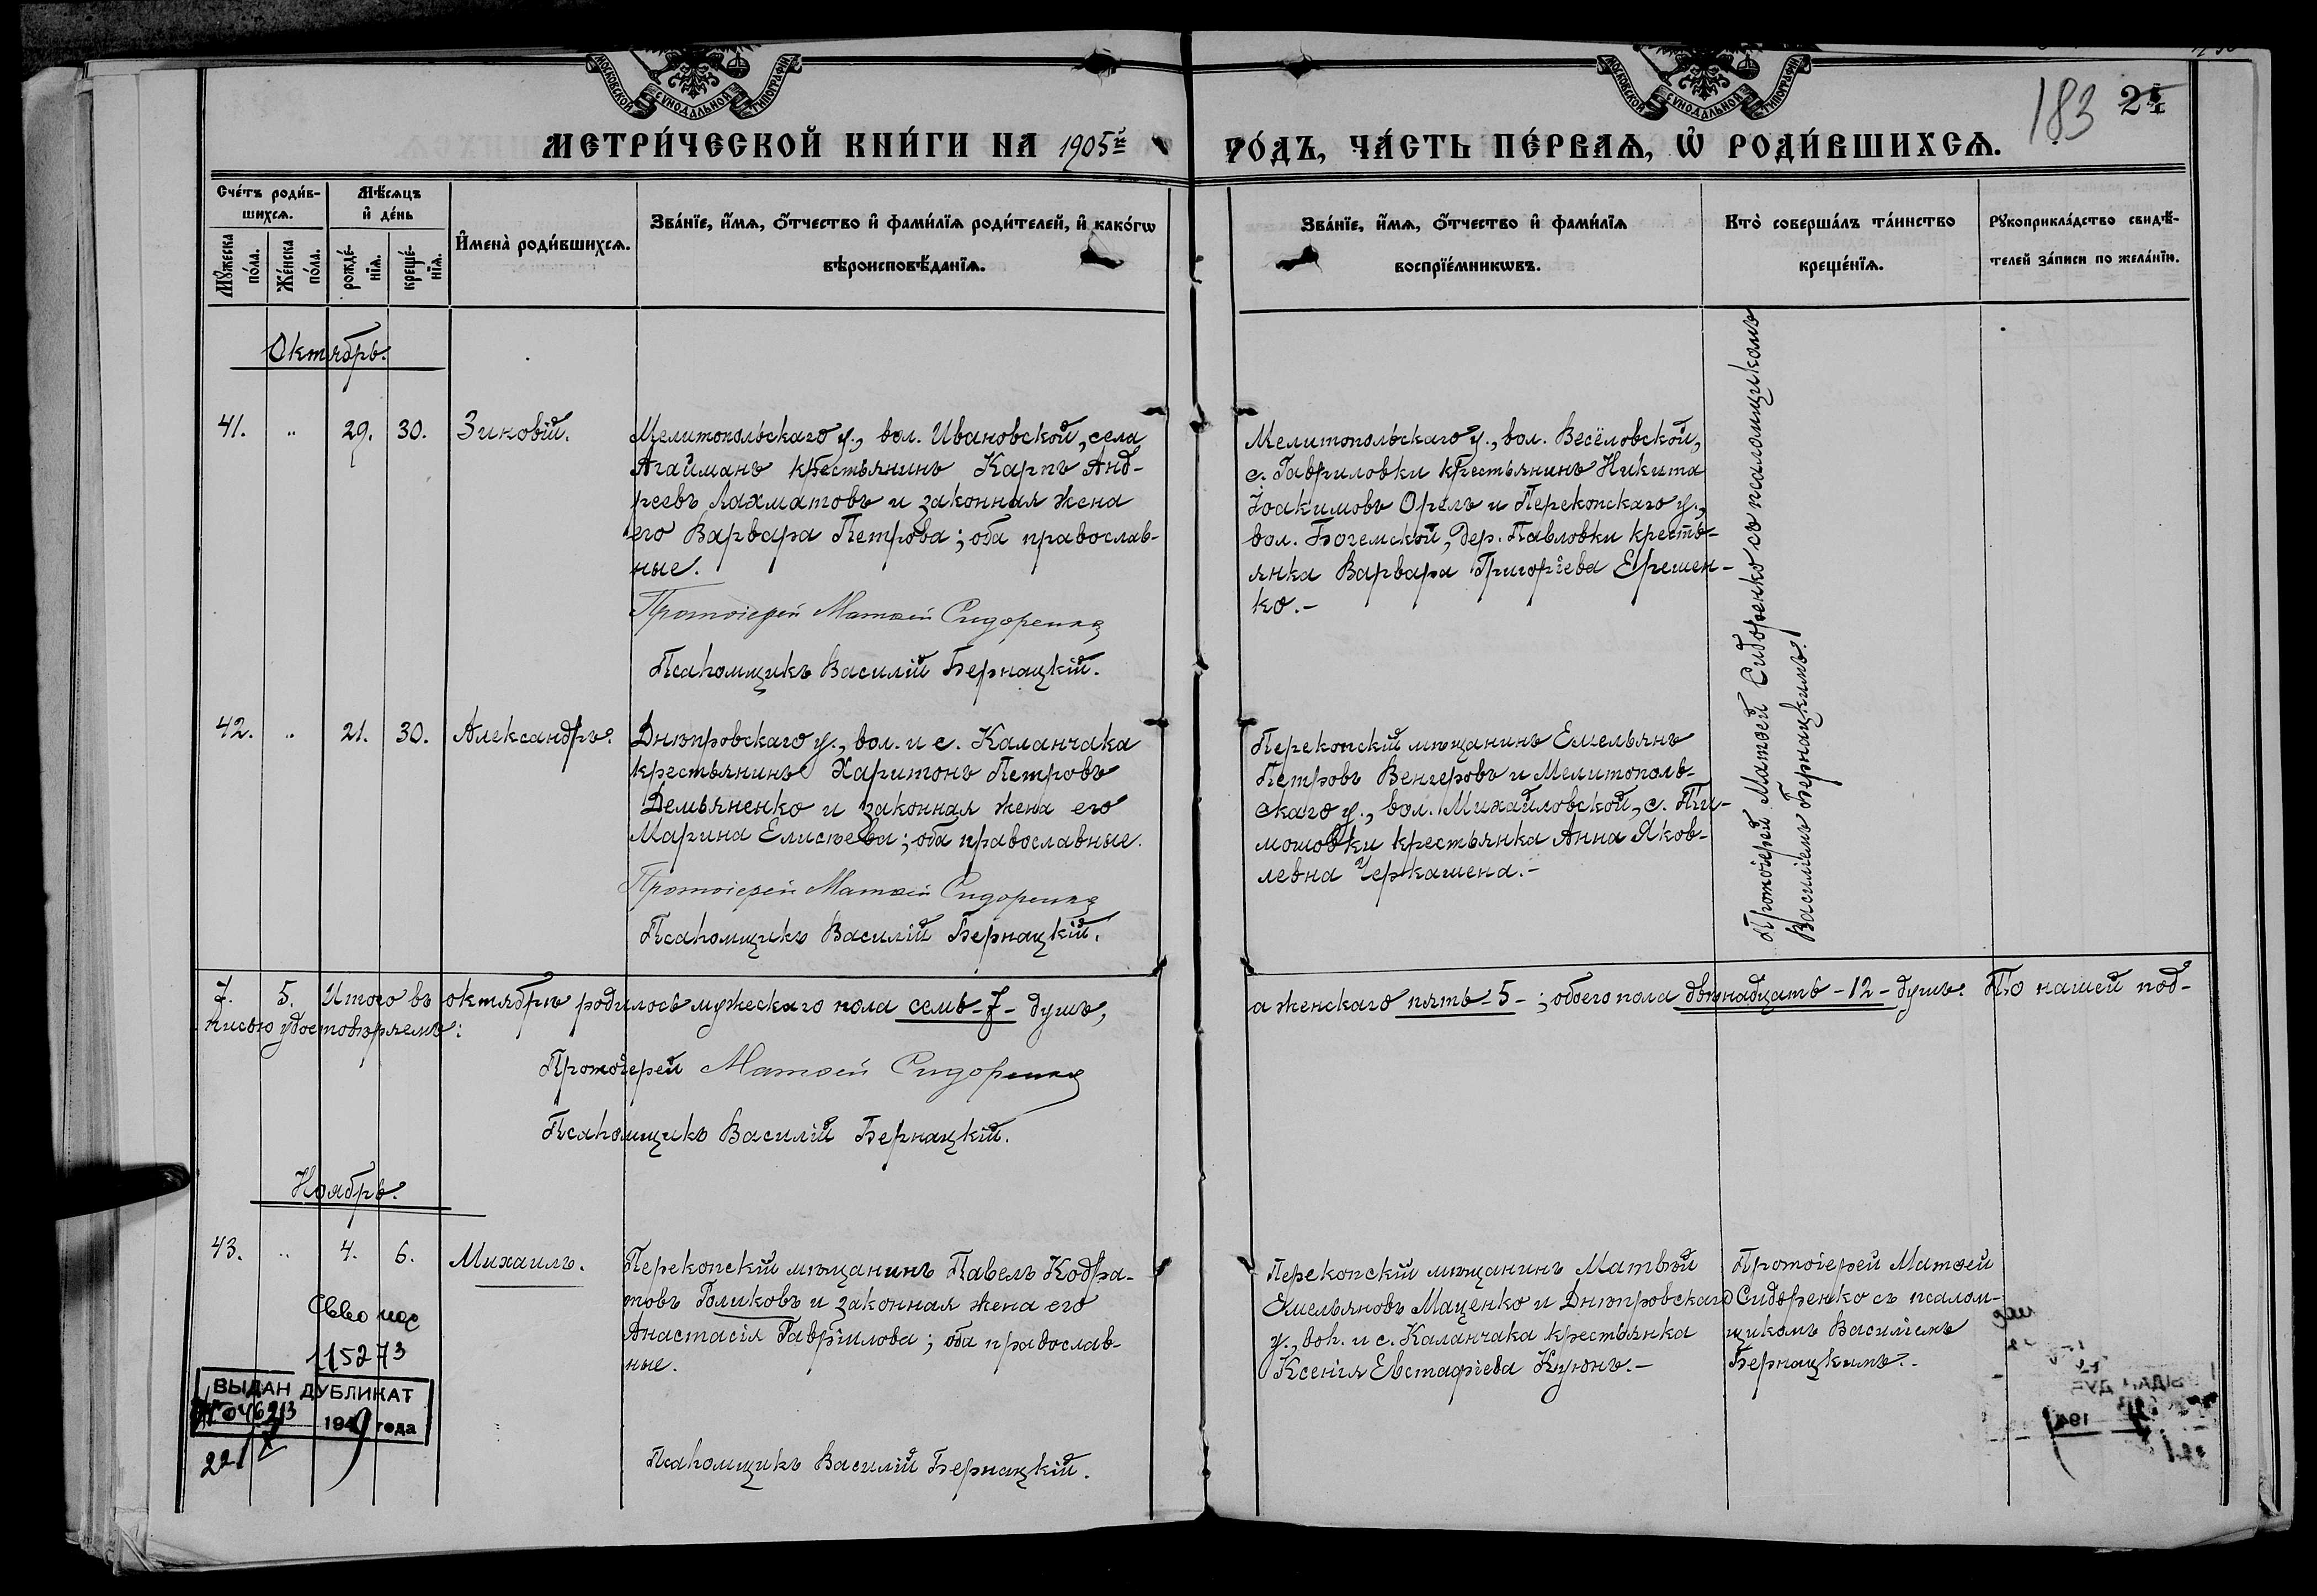 МОСКОВСКОЙ СѴНОДАЛЬНОЙ ТИПОГРАФІИ
МОСКОВСКОЙ СѴНОДАЛЬНОЙ ТИПОГРАФІИ
183
МЕТРИ́ЧЕСКОЙ КНИ́ГИ НА 1905й
ГО́ДЪ, ЧА́СТЬ ПЕ́РВАѦ, Ѡ҆ РОДИ́ВШИХСѦ.
Сче́тъ роди́в-
шихсѧ.
Мѣ́сѧцъ
и҆ де́нь
Мꙋ́жеска
по́ла.
Же́нска
по́ла.
рожде́-
нїѧ.
креще́-
нїѧ.
И҆мена̀ роди́вшихсѧ.
Зва́нїе, и҆́мѧ, ѻ҆́тчество и҆ фами́лїѧ роди́телей, и҆ како́гѡ
вѣроисповѣ́данїѧ.
Зва́нїе, и҆́мѧ, ѻ҆́тчество и҆ фами́лїѧ
воспрїе́мникѡвъ.
Кто̀ соверша́лъ та́инство
креще́нїѧ.
Рꙋкоприкла́дство свидѣ́-
телей за́писи по жела́нїю.
Октябрь.
41. „ 29. 30. Зиновій.
Мелитопольскаго у., вол. Ивановской, села
Агаймана крестьянинъ Карпъ Анд-
реевъ Лахматовъ и законная жена
его Варвара Петрова; оба православ-
ные.
Протоіерей Матѳей Сидоренко
Псаломщикъ Василій Бернацкій.
Мелитопольскаго у., вол. Весёловской,
с. Гавриловки крестьянинъ Никита
Іоакимовъ Орелъ и Перекопскаго у.,
вол. Богемской, дер. Павловки кресть-
янка Варвара Григоріева Ерешен-
ко.-
Протоіерей Матѳей Сидоренко съ псаломщикомъ
Василіемъ Бернацкимъ.
42. „ 21. 30. Александръ.
Днѣпровскаго у., вол. и с. Каланчака
крестьянинъ Харитонъ Петровъ
Демьяненко и законная жена его
Марина Елисѣева; оба православные.
Протоіерей Матѳей Сидоренко
Псаломщикъ Василій Бернацкій.
Перекопскій мѣщанинъ Емельянъ
Петровъ Венгеровъ и Мелитополь-
скаго у., вол. Михайловской, с. Ти-
мошовки крестьянка Анна Яков-
левна Черкашена.-
7. 5. Итого въ октябрѣ родилось мужескаго пола семь-7- душъ,
а женскаго пять-5-; обоего пола двѣнадцать-12-душъ. По нашей под-
писью удостовѣряемъ:
Протоіерей Матѳей Сидоренко
Псаломщикъ Василій Бернацкій.
Ноябрь.
43. „ 4. 6. Михаилъ.
Перекопскій мѣщанинъ Павелъ Кодра-
товъ Голиковъ и законная жена его
Анастасія Гавріилова; оба православ-
ные.
Псаломщикъ Василій Бернацкій.
Перекопскій мѣщанинъ Матвѣй
Емельяновъ Маценко и Днѣпровскаго
у., вол. и с. Каланчака крестьянка
Ксенія Евстафіева Куюнъ.-
Протоіерей Матѳей
Сидоренко съ псалом-
щикомъ Василіемъ
Бернацкимъ.-
115273
ВЫДАН ДУБЛИКАТ
1949 года